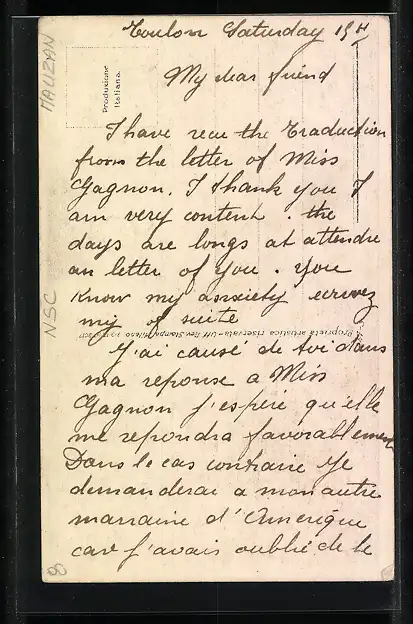 Toulon Saturday 19th
My dear friend
I have recu the traduction
from the letter of Miss
Gagnon. I thank you I
am very content. the
days are longs at attendre
an letter of you. you
know my anxiety ecrivez
my of suite
J'ai causé de toi dans
ma reponse a Miss
Gagnon j'espére qu'elle
me repondra favorablement
Dans le cas contraire je
demanderai a mon autre
marraine d'Amerique
car j'avais oublié de te
Produzione
Italiana.
Proprietà artistica riservata - Uff. Rev. Stampa Milano
MAUZAN
NSC